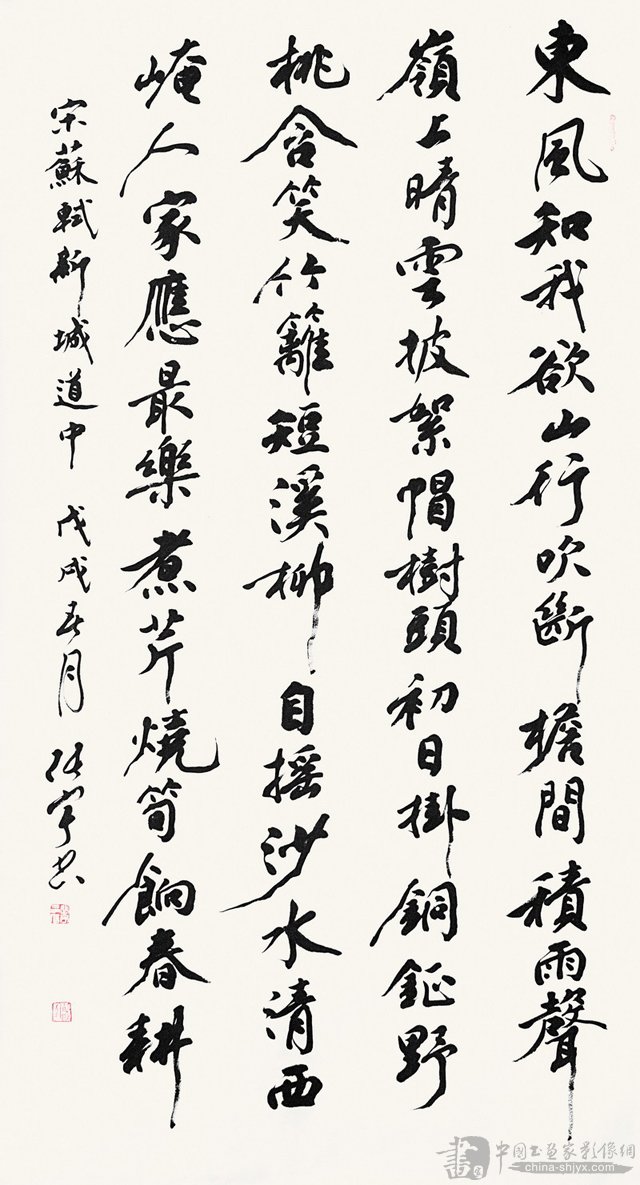 東風知我欲山行吹斷檐間積雨聲
嶺上晴雲披絮帽樹頭初日掛銅鉦野
桃含笑竹籬短溪柳自摇沙水清西
崦人家應最樂煮芹燒筍餉春耕
宋蘇軾新城道中 戊戌春月 張宇書
書 中國書畫家影像網
china-shjyx.com